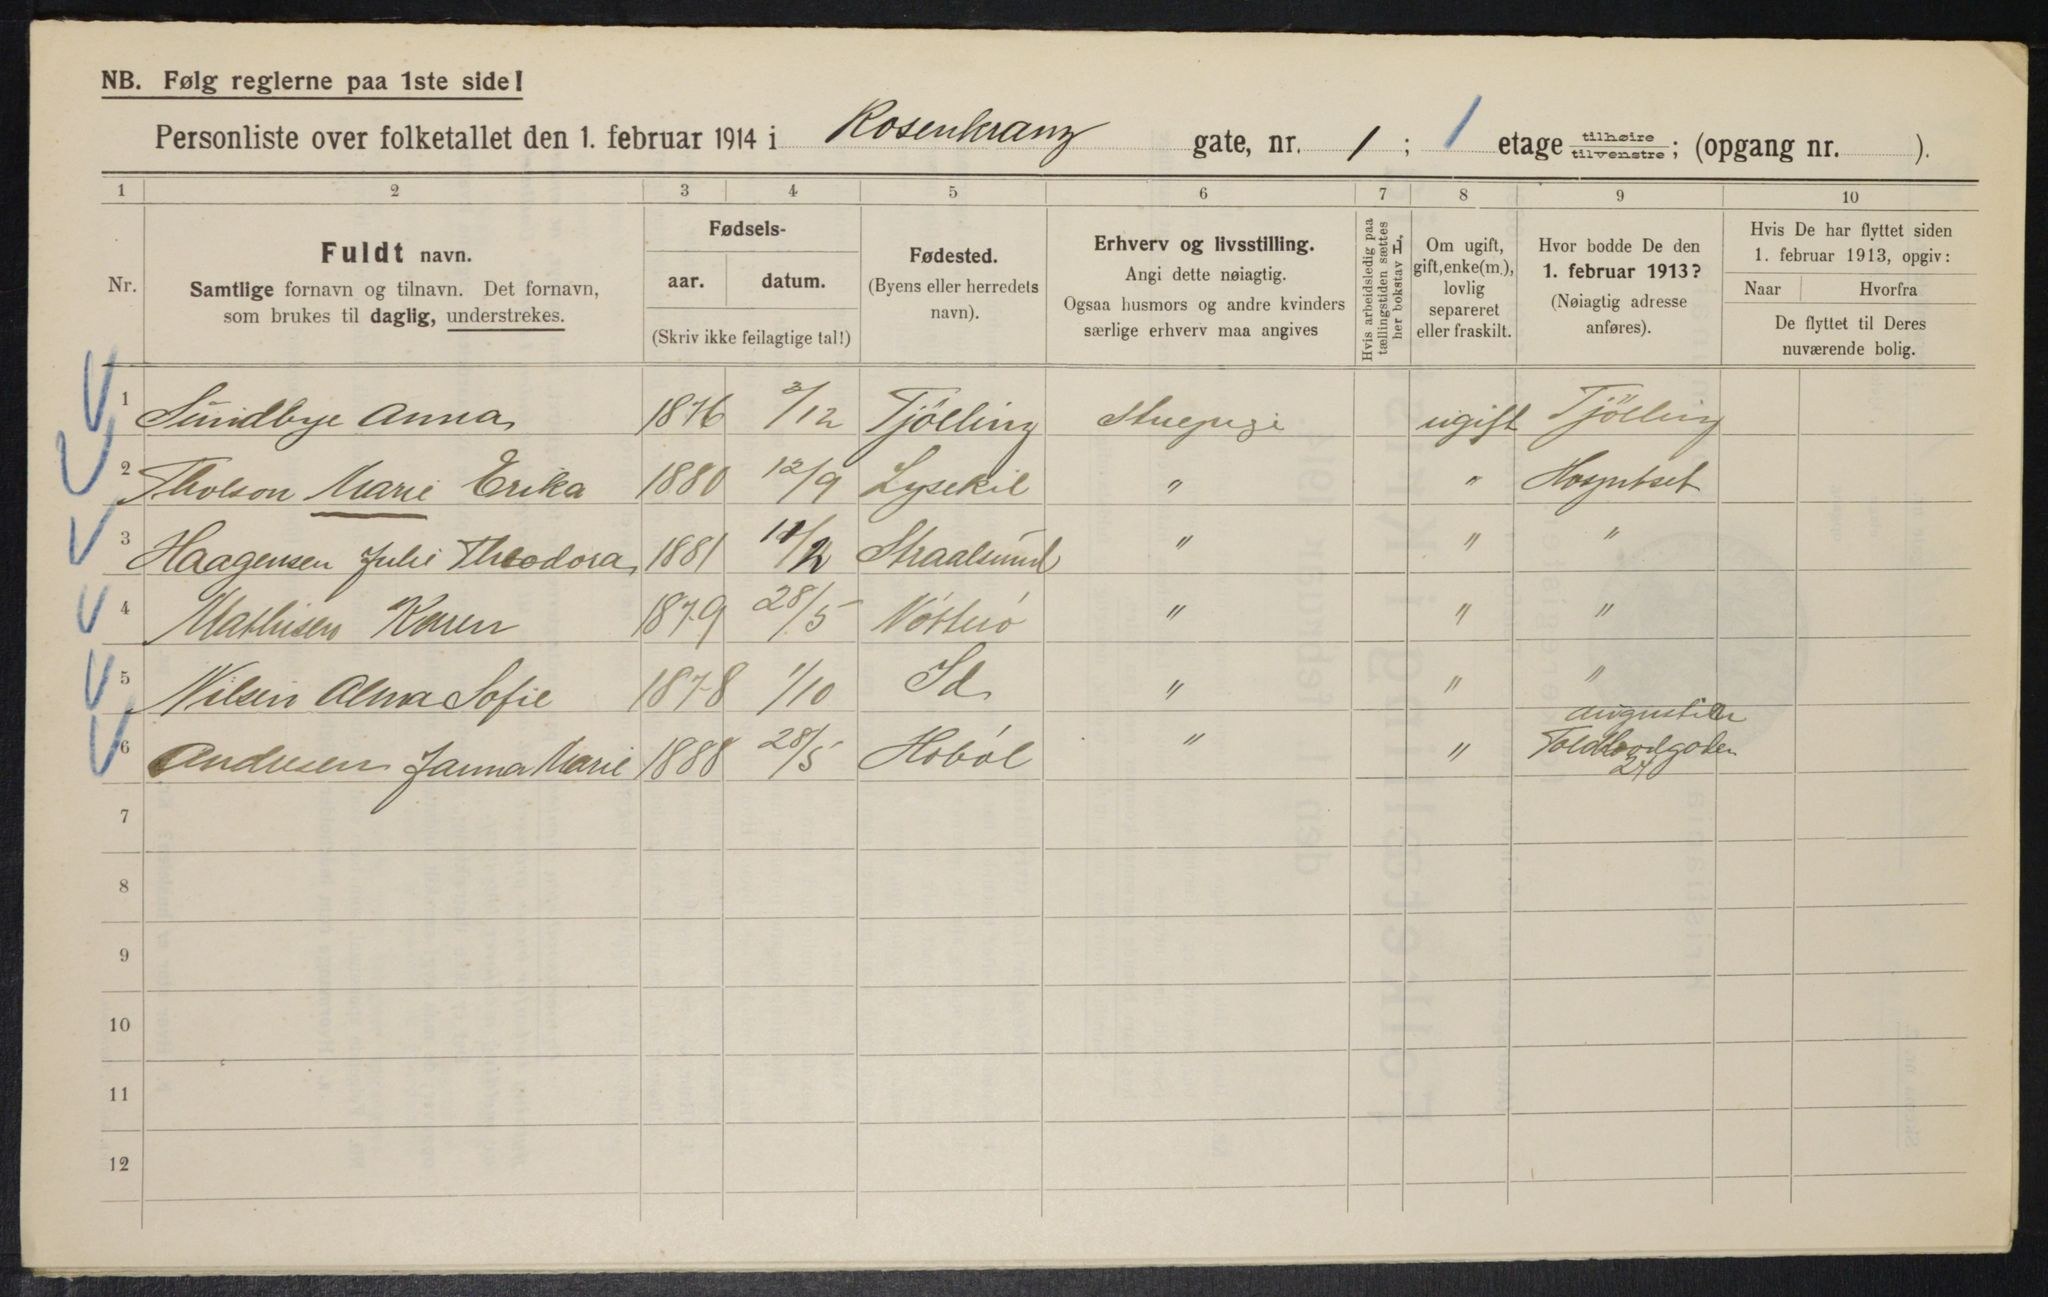 NB. Følg reglerne paa 1ste side!
Personliste over folketallet den 1. februar 1914 i Rosenkranz gate, nr. 1; 1 etage tilhøire/tilvenstre; (opgang nr. ).
1 2 3 4 5 6 7 8 9 10
Nr.
Fuldt navn.
Samtlige fornavn og tilnavn. Det fornavn,
som brukes til daglig, understrekes.
Fødsels-
aar. datum.
(Skriv ikke feilagtige tal!)
Fødested.
(Byens eller herredets
navn).
Erhverv og livsstilling.
Angi dette nøiagtig.
Ogsaa husmors og andre kvinders
særlige erhverv maa angives
Hvis arbeidsledig paa
tællingstiden sættes
her bokstav L.
Om ugift,
gift, enke(m.),
lovlig
separeret
eller fraskilt.
Hvor bodde De den
1. februar 1913?
(Nøiagtig adresse
anføres).
Hvis De har flyttet siden
1. februar 1913, opgiv:
Naar Hvorfra
De flyttet til Deres
nuværende bolig.
1 Sundbye Anna 1876 2/12 Tjölling Stuepige ugift Tjölling
2 Tholson Marie Erika 1880 12/9 Lysekil " " Hospitset
3 Haagensen Julie Theodora 1881 Straalsund " " "
4 Mathisen Karen 1879 28/5 Nötterö " " "
5 Nilsen Alma Sofie 1878 1/10 Id " " "
6 Andresen Janna Marie 1888 28/5 Haböl " "
Toldbodgaden
24
7
8
9
10
11
12